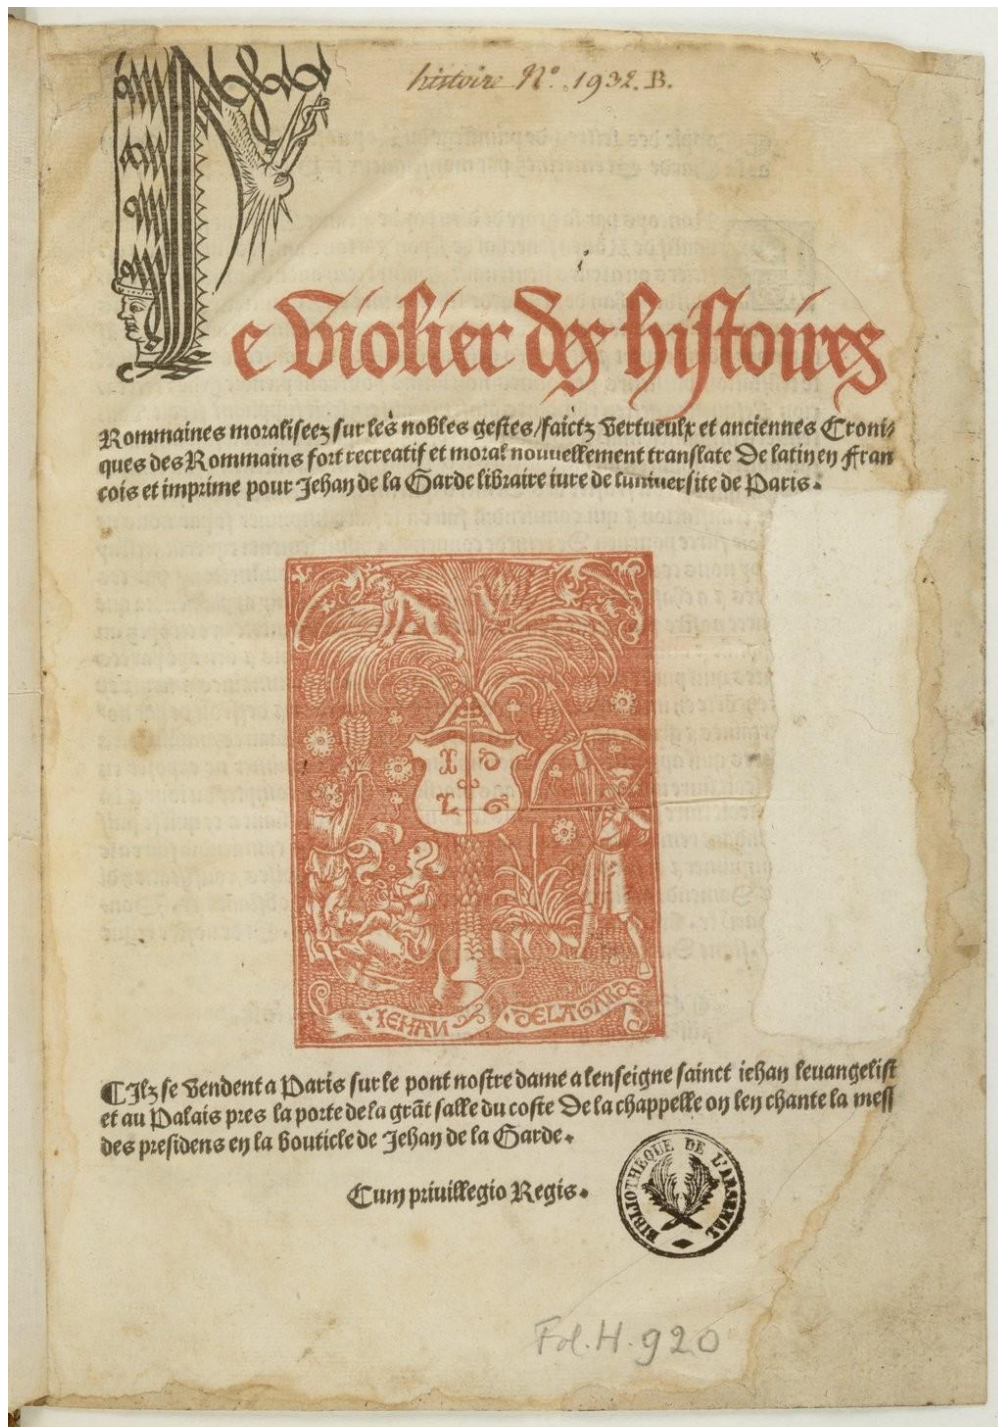 histoire Nº. 1932. B.
Le Violier des histoires
Rommaines moraliseez sur les nobles gestes/faictz Vertueulx et anciennes Croni/
ques des Rommains fort recreatif et moral nouuellement translate De latin en Fran
cois et imprime pour Jehan de la Garde libraire iure de luniuersite de Paris.
I D
L G
IEHAN DELAGARDE
¶Ilz se Vendent a Paris sur le pont nostre dame a lenseigne sainct iehan leuangelist
et au Palais pres la porte de la grãt salle du coste De la chappelle ou len chante la mess
des presidens en la bouticle de Jehan de la Garde.
Cum priuillegio Regis.
BIBLIOTHÈQUE DE L'ARSENAL
Fol. H. 920